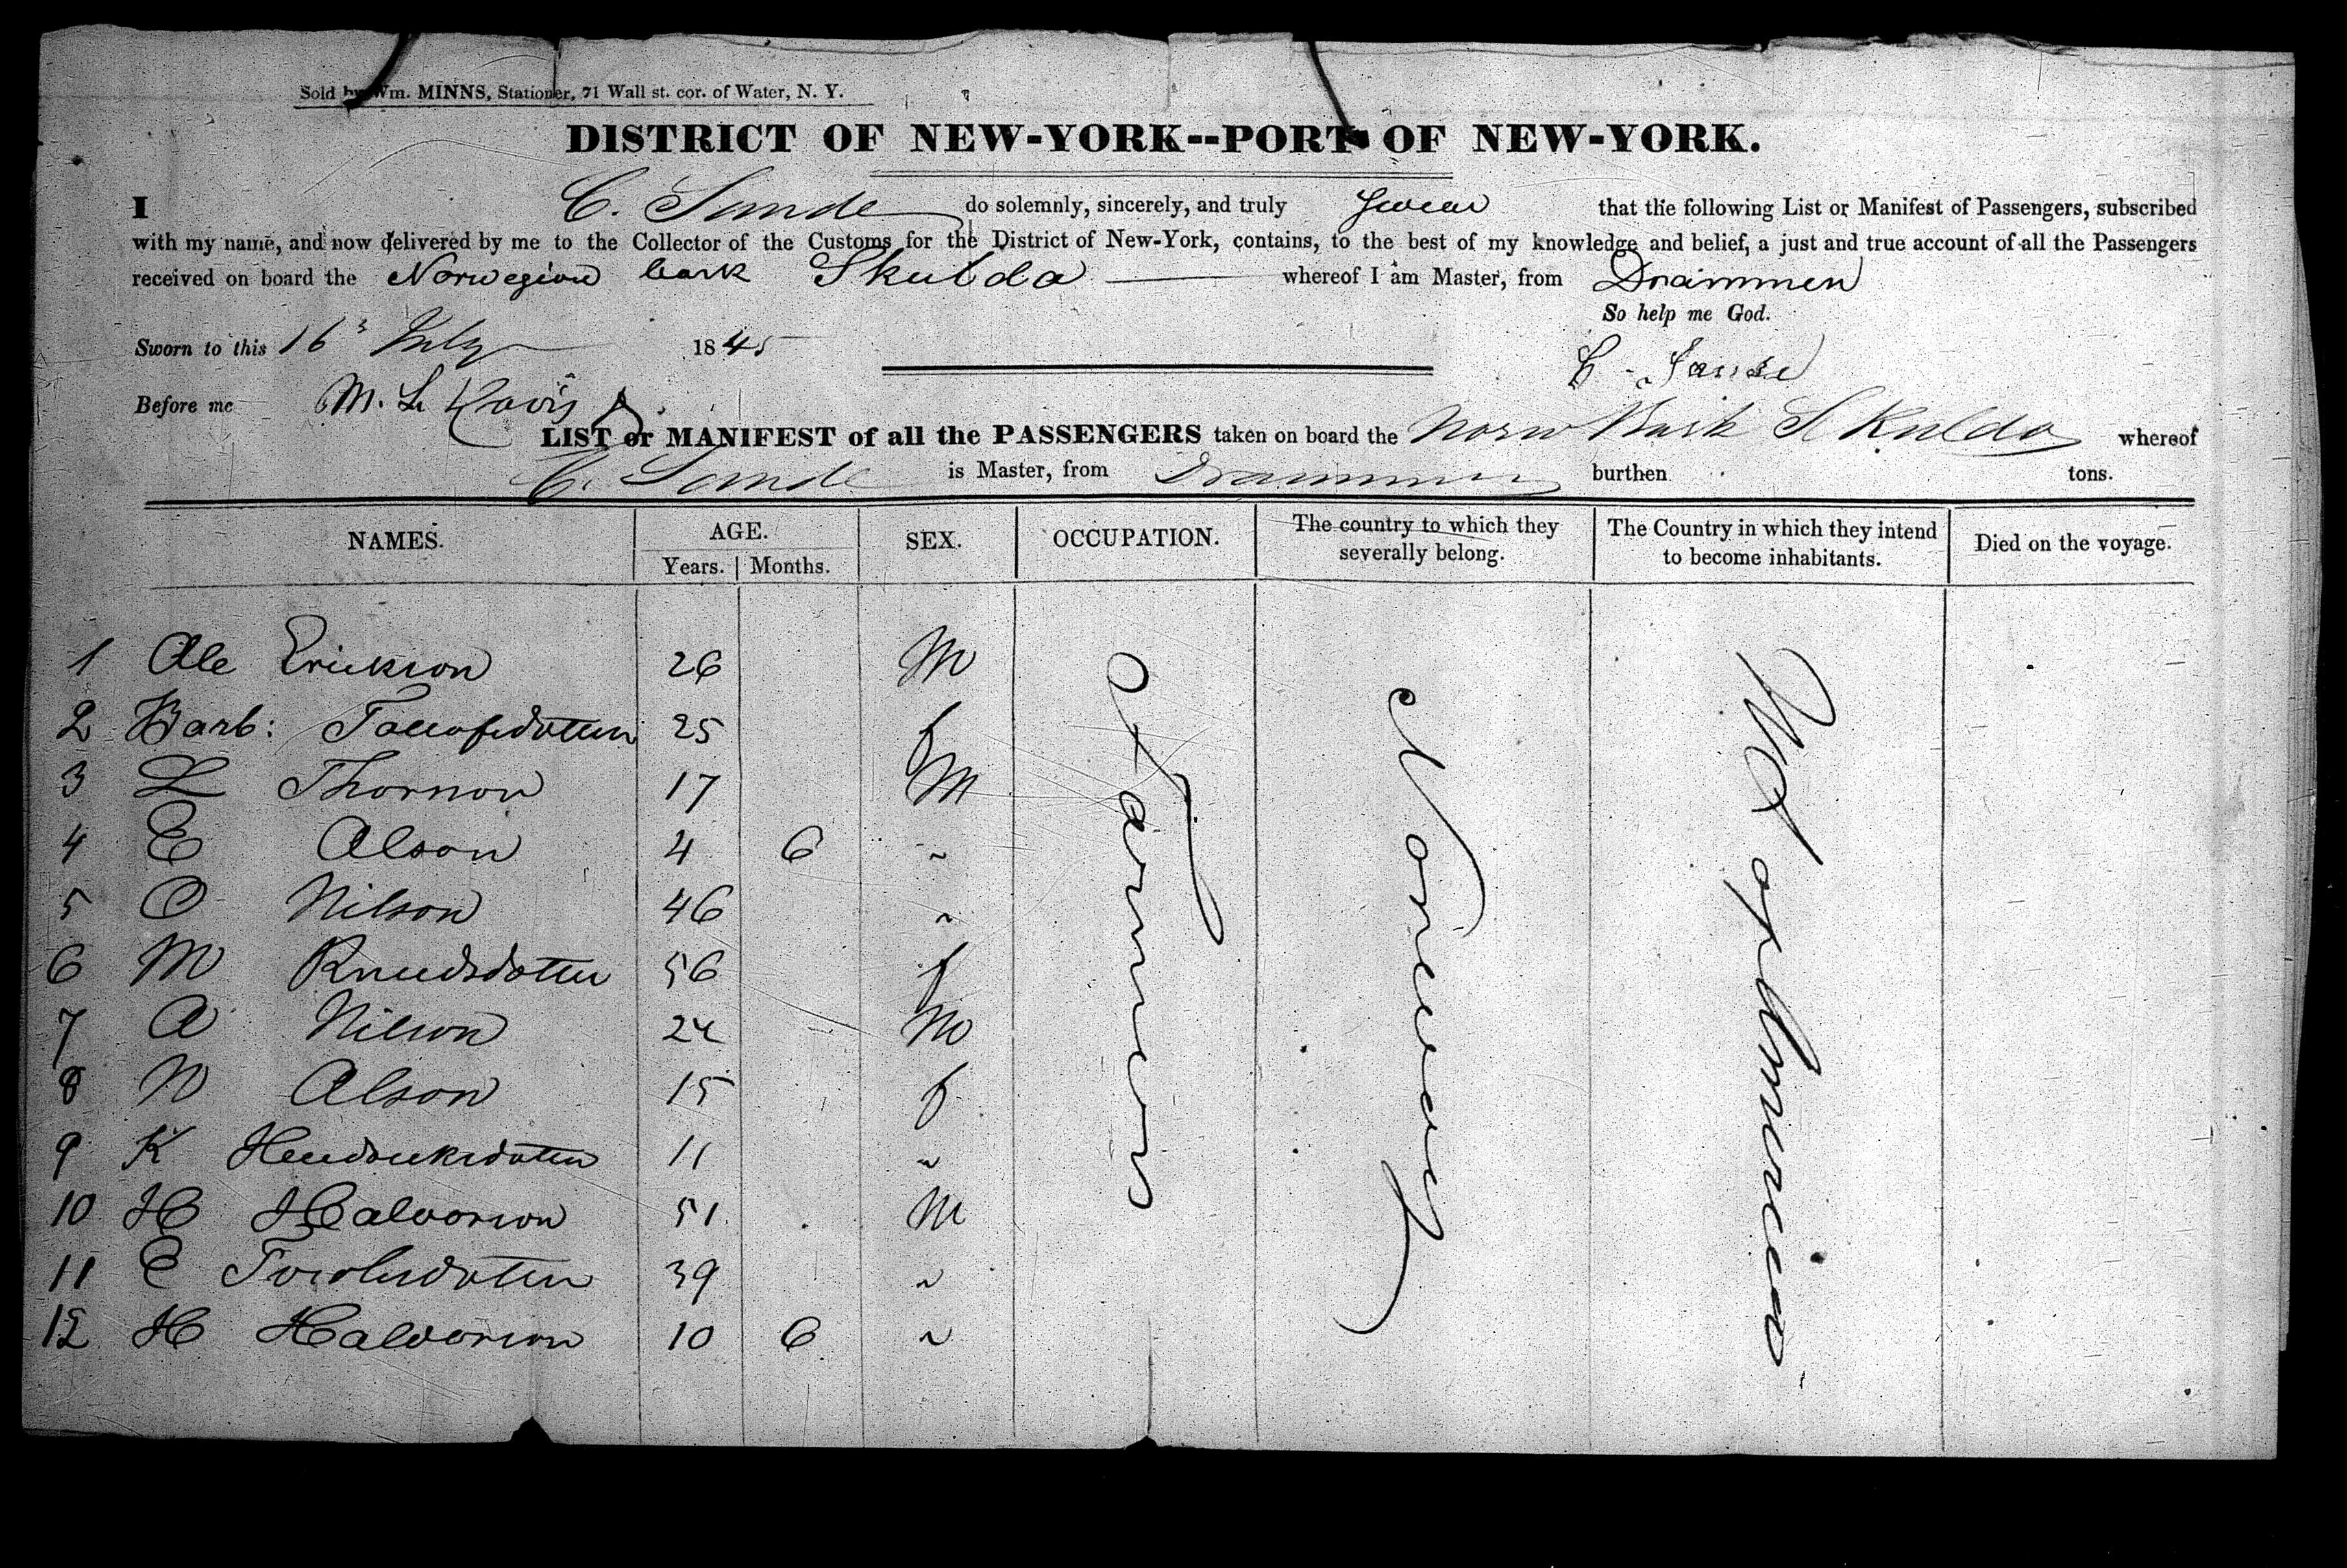 Sold by Wm. MINNS, Stationer, 71 Wall st. cor. of Water, N. Y.
DISTRICT OF NEW-YORK--PORT OF NEW-YORK.
I C. Sande do solemnly, sincerely, and truly swear that the following List or Manifest of Passengers, subscribed
with my name, and now delivered by me to the Collector of the Customs for the District of New-York, contains, to the best of my knowledge and belief, a just and true account of all the Passengers
received on board the Norwegian bark Skulda whereof I am Master, from Drammen
So help me God.
Sworn to this 16 July 1845
C. Sande
Before me M. L. Davis
LIST or MANIFEST of all the PASSENGERS taken on board the Norw Bark Skulda whereof
C. Sande is Master, from Drammen burthen tons.
NAMES. AGE. Years. Months. SEX. OCCUPATION. The country to which they severally belong. The Country in which they intend to become inhabitants. Died on the voyage.
1 Ole Erickson 26 M
2 Barb: 25 f
3 L Thorson 17 M
4 E Olson 4 6 ~
5 O Nilson 46 ~
6 M Knudsdatter 56 f
7 O Nilson 24 M
8 N Olson 15 f
9 K Hendriksdatter 11 ~
10 H Halvorson 51 M
11 E 39 ~
12 H Halvorson 10 6 ~
Farmers
Norway
US of America